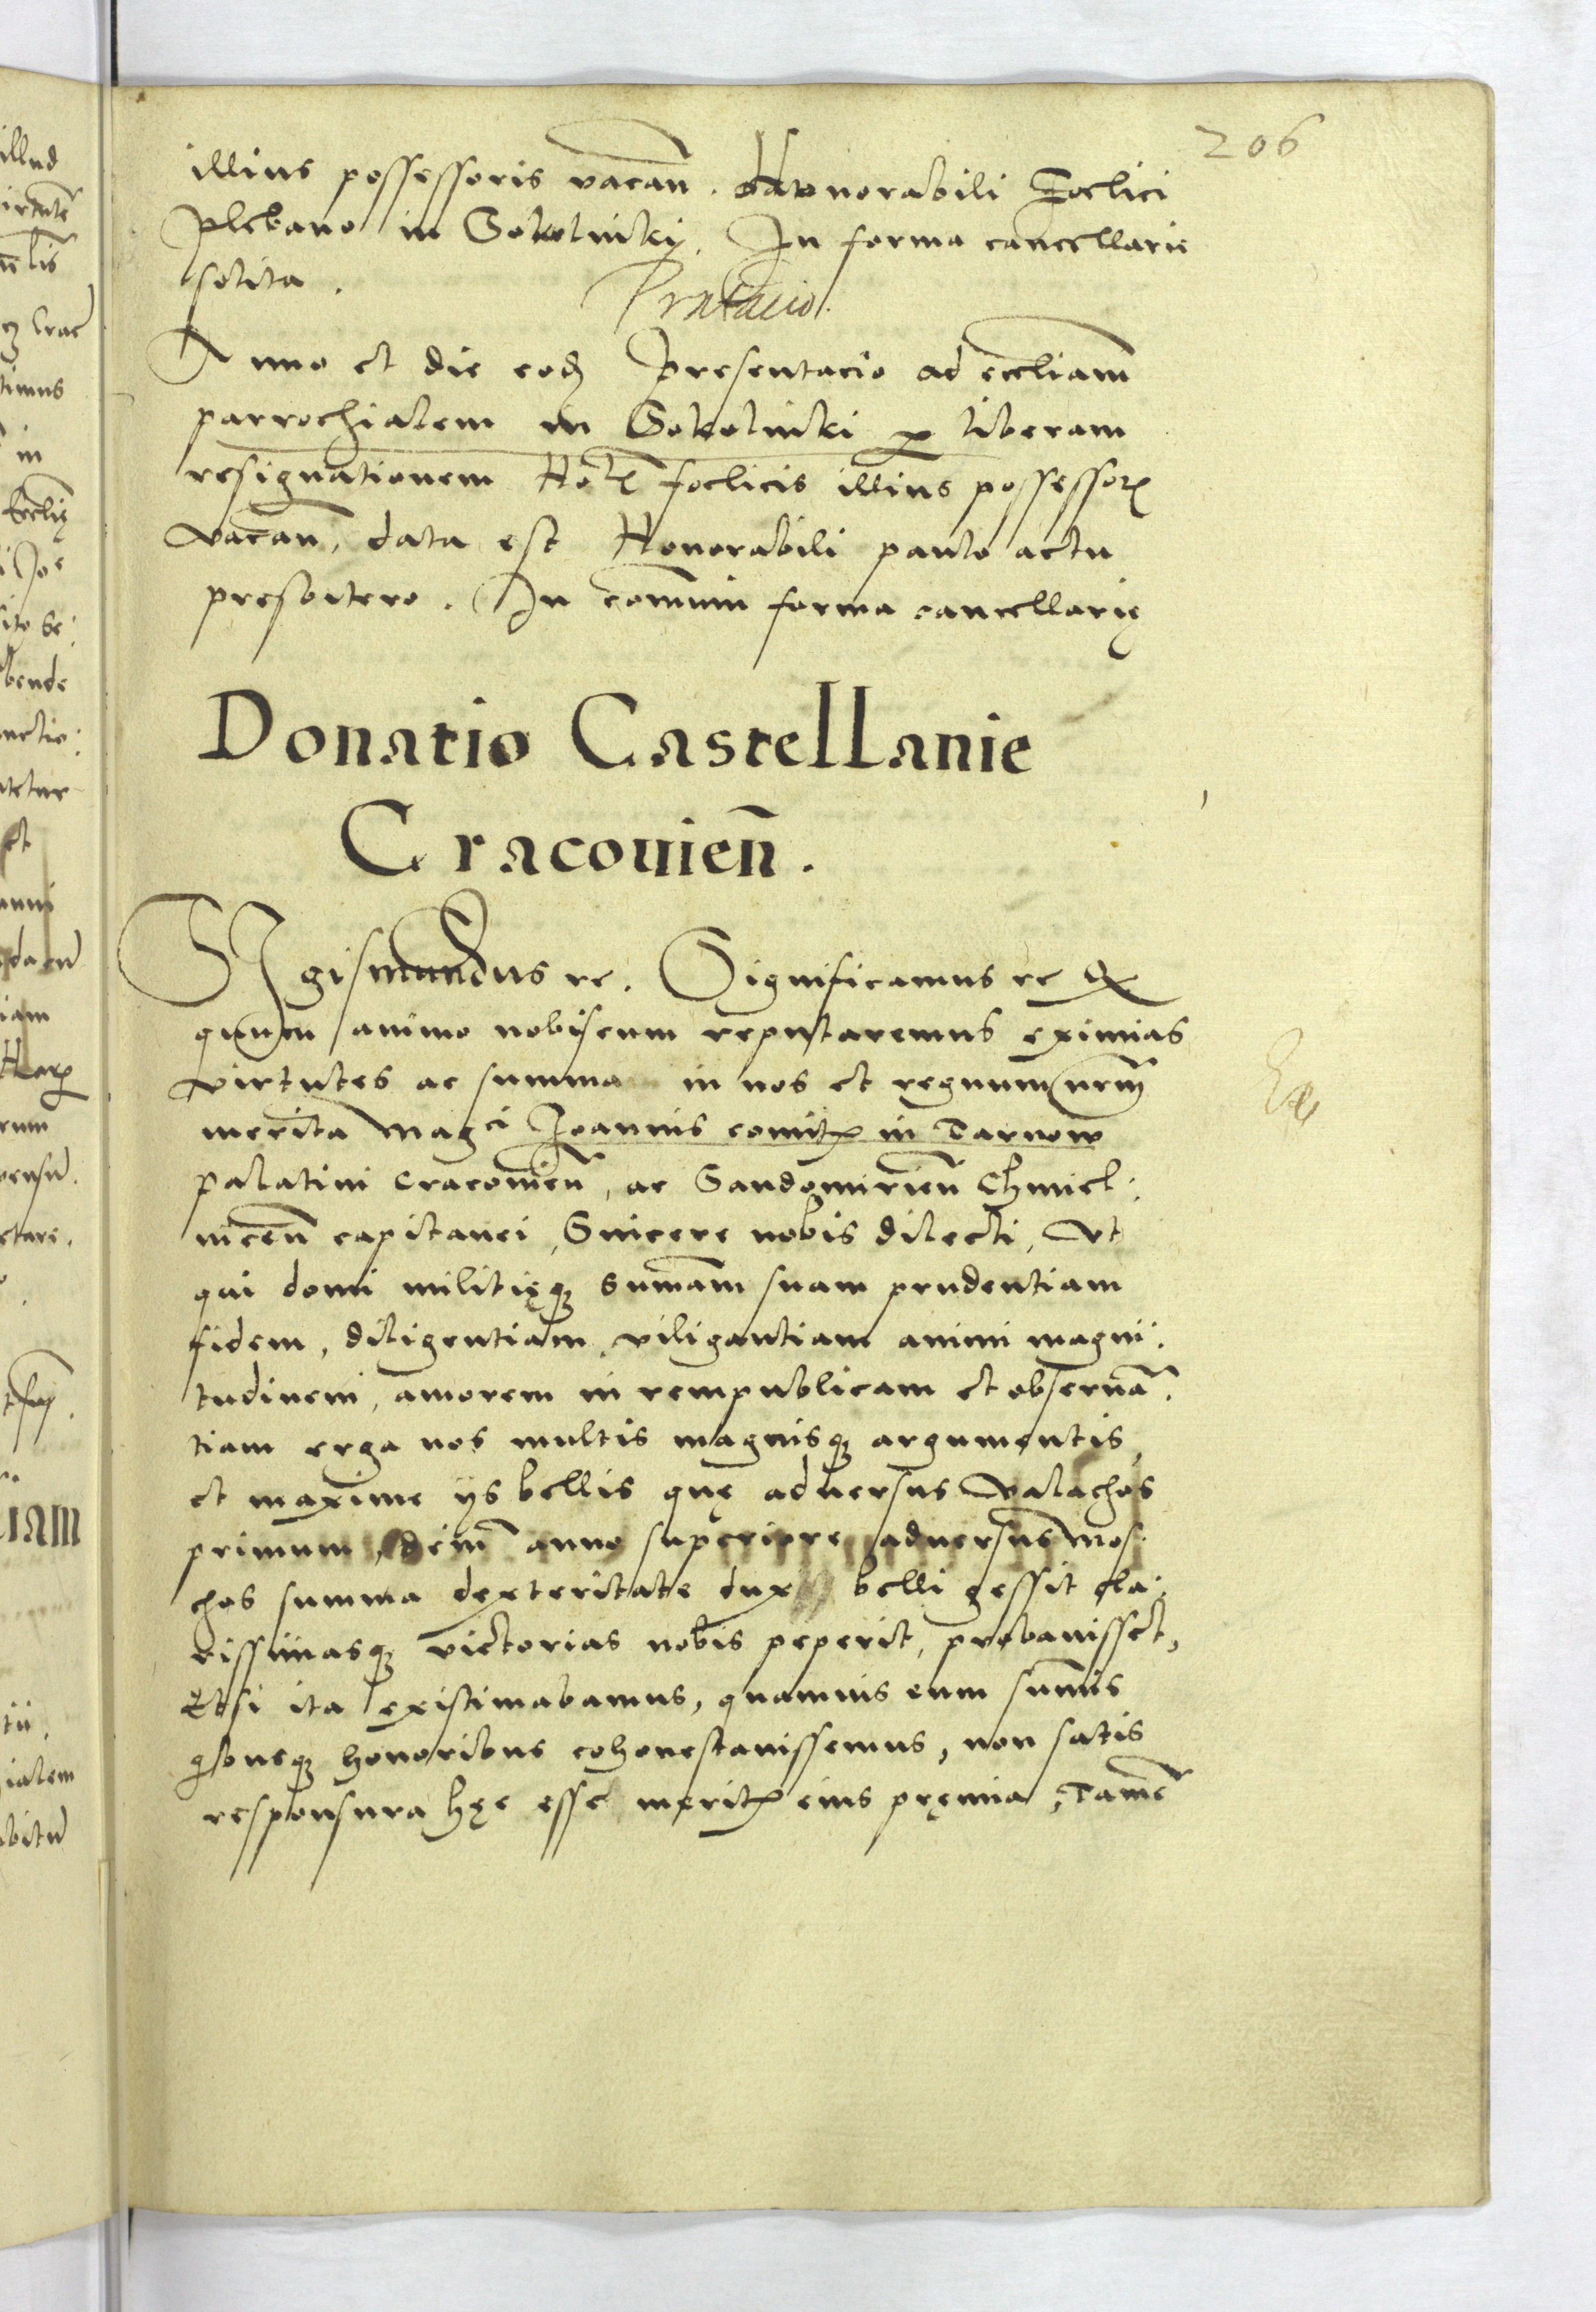 206
illius possessoris vacan̄. honorabili Foelici
plebano in Sokolniky. In forma cancellarie
solita.
Pntacio.
Anno et die eod̄ Presentacio ad eccliam
parrochialem in Sokolniki per liberam
resignationem Hōlis foelicis illius possessoris
vacan̄, data est Honorabili paulo actu
presbitero. In com̄uni forma cancellarię
Donatio Castellanie
Cracouien̄.
Sigismundus rc. Significamus rc Q
quum animo nobiscum reputaremus eximias
virtutes ac summa in nos et regnum nr̄m
merita Magci Joannis comitis in Tarnow
palatini Cracouien̄, ac Sandomirien̄ Chmiel:
nicen̄ capitanei, Sincere nobis dilecti, vt
qui domi militięq; sum̄am suam prudentiam
fidem, diligentiam, viligantiam animi magni:
tudinem, amorem in rempublicam et obseruā:
tiam erga nos multis magnisq; argumentis,
et maxime ijs bellis quę aduersus Valachos
primum, dein̄ anno superiore aduersus Mos:
chos summa dexteritate dux belli gessit cla:
rissimasq; victorias nobis peperit, probauisset,
Etsi ita existimabamus, quamuis eum sum̄is
quibusq; honoribus cohonestauissemus, non satis
responsura hęc esse meritis eius pręmia, Tamē